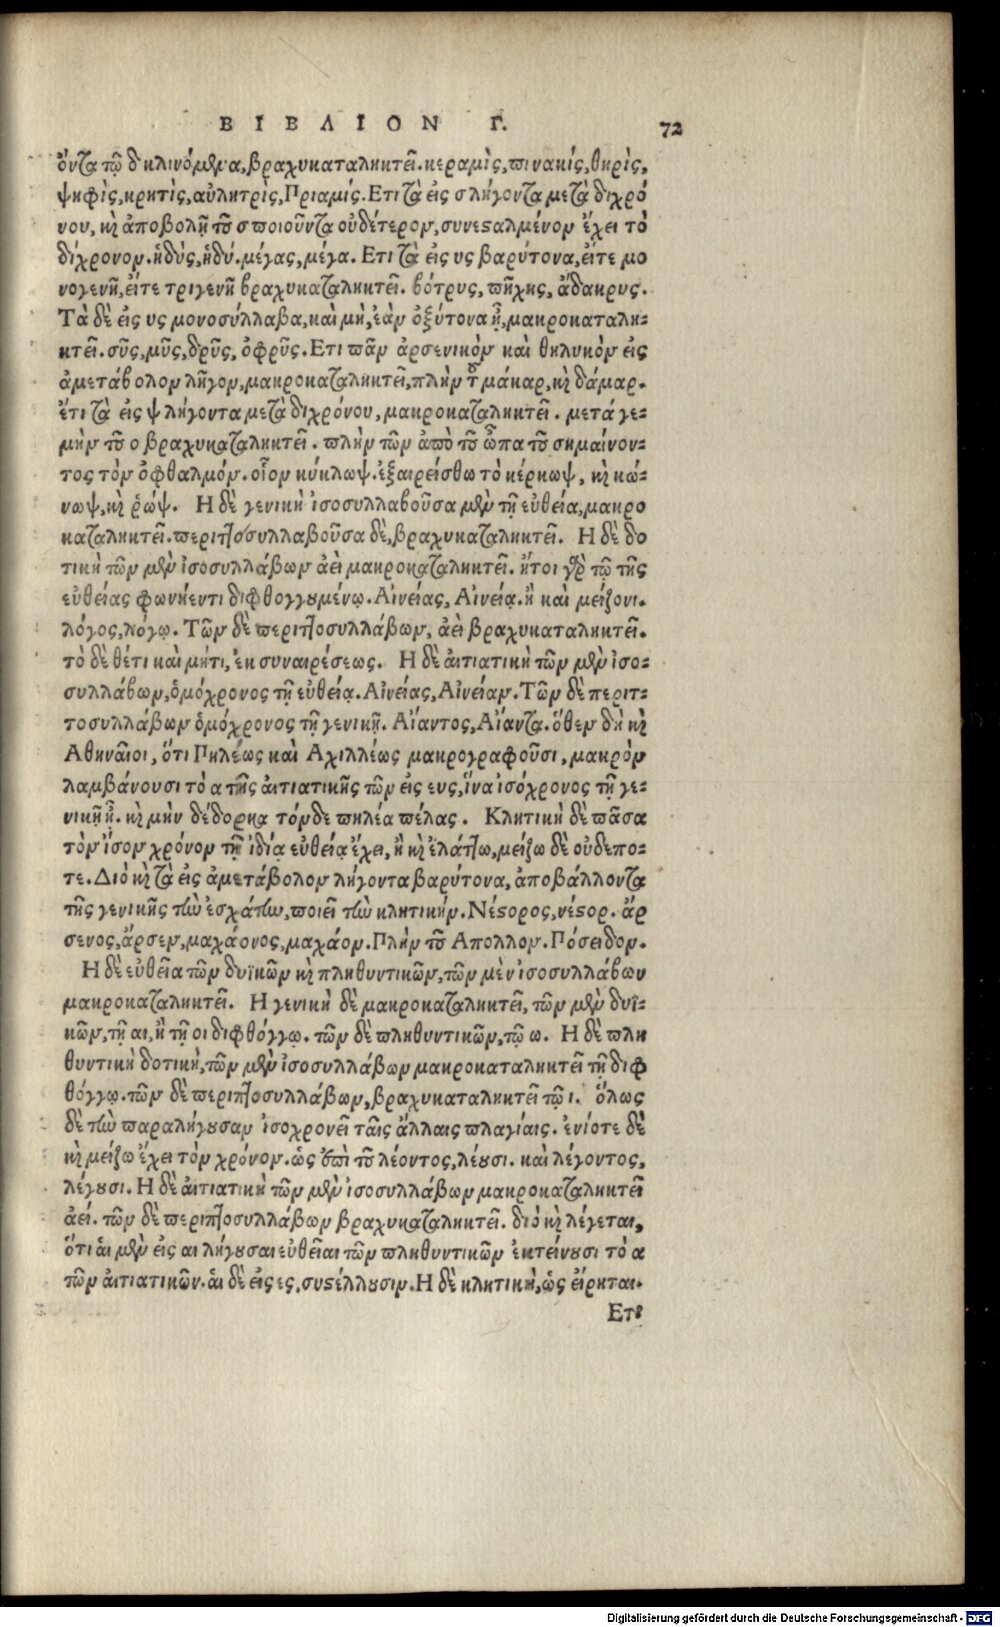 ΒΙΒΛΙΟΝ Γ. 72
όντα τῷ δ κλινόμενα, βραχυκαταληκτεῖ. κεραμὶς, πινακίς, θηρὶς,
ψηφὶς, κρητὶς, αὐλητρὶς, Πριαμίς. Ετι τὰ εἰς σ λήγοντα μετὰ διχρό
νου, καὶ ἀποβολῇ τοῦ σ ποιοῦντα οὐδέτερον, συνεσταλμένον ἔχει τὸ
δίχρονον. ἡδὺς, ἡδύ. μέγας, μέγα. Ετι τὰ εἰς υς βαρύτονα, εἴτε μο
νογενῆ, εἴτε τριγενῆ βραχυκαταληκτεῖ. βότρυς, πῆχυς, ἄδακρυς.
Τὰ δὲ εἰς υς μονοσύλλαβα, καὶ μὴ, ἐὰν ὀξύτονα ᾖ, μακροκαταλη-
κτεῖ. σῦς, μῦς, δρῦς, ὀφρῦς. Ετι πᾶν ἀρσενικὸν καὶ θηλυκὸν εἰς
ἀμετάβολον λῆγον, μακροκαταληκτεῖ, πλὴν τοῦ μάκαρ, καὶ δάμαρ.
ἔτι τὰ εἰς ψ λήγοντα μετὰ διχρόνου, μακροκαταληκτεῖ. μετά γε-
μὴν τοῦ ο βραχυκαταληκτεῖ. πλὴν τῶν ἀπὸ τοῦ ὦπα τοῦ σημαίνον-
τος τὸν ὀφθαλμόν. οἷον κύκλωψ. ἐξαιρείσθω τὸ κέρκωψ, καὶ κώ-
νωψ, καὶ ῥώψ. Η δὲ γενικὴ ἰσοσυλλαβοῦσα μὲν τῇ εὐθεία, μακρο
καταληκτεῖ. περιττοσυλλαβοῦσα δὲ, βραχυκαταληκτεῖ. Η δὲ δο
τικὴ τῶν μὲν ἰσοσυλλάβων ἀεὶ μακροκαταληκτεῖ. ἤτοι γὰρ τῷ τῆς
εὐθείας φωνήεντι διφθογγουμένῳ. Αἰνείας, Αἰνείᾳ. ἢ καὶ μείζονι.
λόγος, λόγῳ. Τῶν δὲ περιττοσυλλάβων, ἀεὶ βραχυκαταληκτεῖ.
τὸ δὲ θέτι καὶ μήτι, ἐκ συναιρέσεως. Η δὲ αἰτιατικὴ τῶν μὲν ἰσο-
συλλάβων, ὁμόχρονος τῇ εὐθείᾳ. Αἰνείας, Αἰνείαν. Τῶν δὲ περιτ-
τοσυλλάβων ὁμόχρονος τῇ γενικῇ. Αἴαντος, Αἴαντα. ὅθεν δὴ καὶ
Αθηναῖοι, ὅτι Πηλέως καὶ Αχιλλέως μακρογραφοῦσι, μακρὸν
λαμβάνουσι τὸ α τῆς αἰτιατικῆς τῶν εἰς ευς, ἵνα ἰσόχρονος τῇ γε-
νικῇ ᾖ. καὶ μὴν δέδορκα τόνδε πηλέα πέλας. Κλητικὴ δὲ πᾶσα
τὸν ἴσον χρόνον τῇ ἰδίᾳ εὐθείᾳ ἔχει, ἢ καὶ ἐλάττω, μείζω δὲ οὐδεπο-
τε. Διὸ καὶ τὰ εἰς ἀμετάβολον λήγοντα βαρύτονα, ἀποβάλλοντα
τῆς γενικῆς τὴν ἐσχάτην, ποιεῖ τὴν κλητικήν. Νέστορος, νέστορ. ἄρ
σενος, ἄρσεν, μαχάονος, μαχάον. Πλὴν τοῦ Απολλον. Πόσειδον.
Η δὲ εὐθεῖα τῶν δυϊκῶν καὶ πληθυντικῶν, τῶν μὲν ἰσοσυλλάβων
μακροκαταληκτεῖ. Η γενικὴ δὲ μακροκαταληκτεῖ, τῶν μὲν δυϊ-
κῶν, τῇ αι, ἢ τῇ οι διφθόγγῳ. τῶν δὲ πληθυντικῶν, τῷ ω. Η δὲ πλη
θυντικὴ δοτικὴ, τῶν μὲν ἰσοσυλλάβων μακροκαταληκτεῖ τῇ διφ
θόγγῳ. τῶν δὲ περιττοσυλλάβων, βραχυκαταληκτεῖ τῷ ι. ὅλως
δὲ τὴν παραλήγουσαν ἰσοχρονεῖ ταῖς ἄλλαις πλαγίαις. ἐνίοτε δὲ
καὶ μείζω ἔχει τὸν χρόνον. ὡς ἐπὶ τοῦ λέοντος, λέουσι. καὶ λέγοντος,
λέγουσι. Η δὲ αἰτιατικὴ τῶν μὲν ἰσοσυλλάβων μακροκαταληκτεῖ
ἀεί. τῶν δὲ περιττοσυλλάβων βραχυκαταληκτεῖ. διὸ καὶ λέγεται,
ὅτι αἱ μὲν εἰς αι λήγουσαι εὐθεῖαι τῶν πληθυντικῶν ἐκτείνουσι τὸ α
τῶν αἰτιατικῶν. αἱ δὲ εἰς ες, συστέλλουσιν. Η δὲ κλητικὴ, ὡς εἴρηται.
Ετι
Digitalisierung gefördert durch die Deutsche Forschungsgemeinschaft - DFG